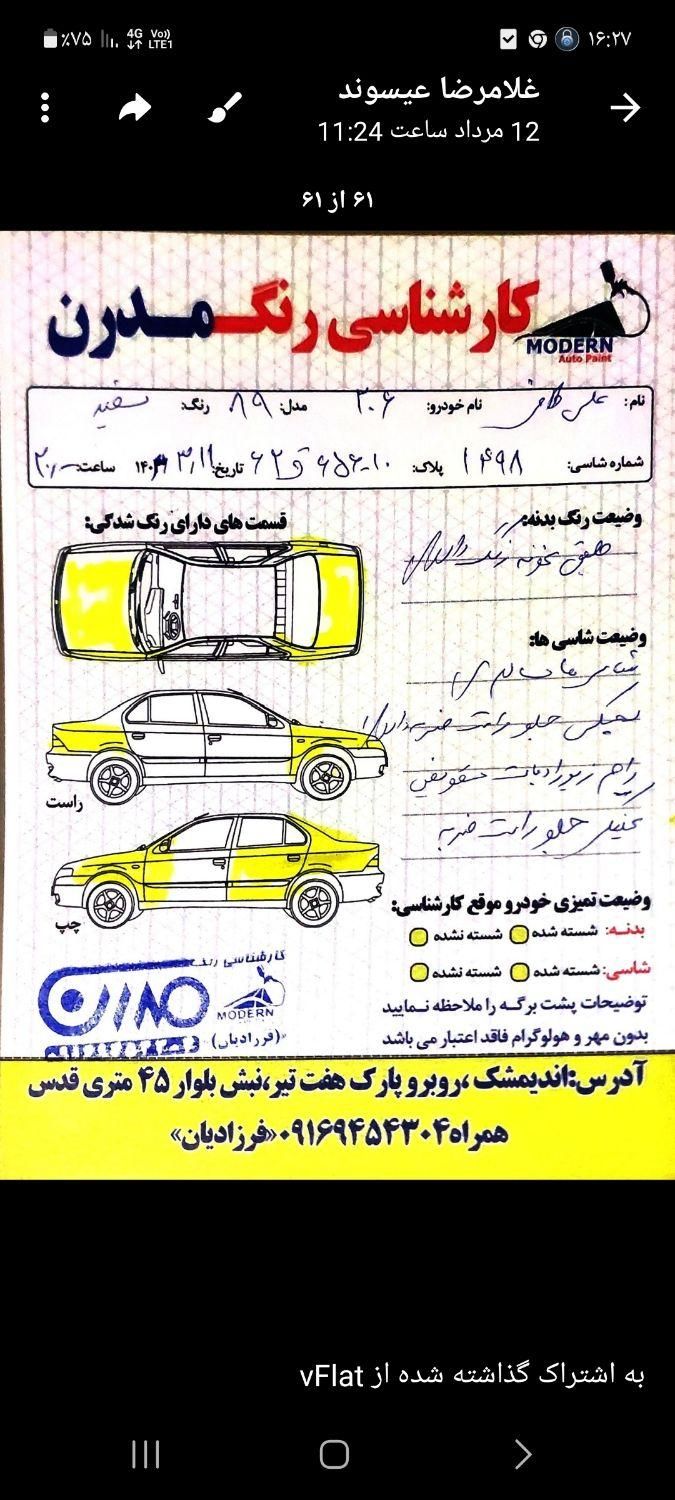 ٪۷۵
4G
Vo))
LTE1
۱۶:۲۷
غلامرضا عیسوند
12 مرداد ساعت 11:24
۶۱ از ۶۱
کارشناسی رنگ مدرن
MODERN
Auto Paint
نام:
نام خودرو: ۲۰۶ مدل: ۸۹ رنگ: سفید
شماره شاسی: ۱۴۹۸ پلاک: تاریخ: ۱۴۰ ساعت:
وضیعت رنگ بدنه:
طبق نمونه رنگ
قسمت های دارای رنگ شدگی:
وضیعت شاسی ها:
شاسی ها سالم
جلو راست ضربه دارد
جلو راست ضربه
راست
چپ
وضیعت تمیزی خودرو موقع کارشناسی:
بدنـه: شسته شده شسته نشده
شاسی: شسته شده شسته نشده
توضیحات پشت برگـه را ملاحظه نـمایید
بدون مهر و هولوگرام فاقد اعتبار می باشد
کارشناسی رنگ
مدرن
MODERN
(فرزادیان)
آدرس:اندیمشک ،روبرو پارک هفت تیر،نبش بلوار ۴۵ متری قدس
همراه۰۹۱۶۹۴۵۴۳۰۴«فرزادیان»
به اشتراک گذاشته شده از vFlat